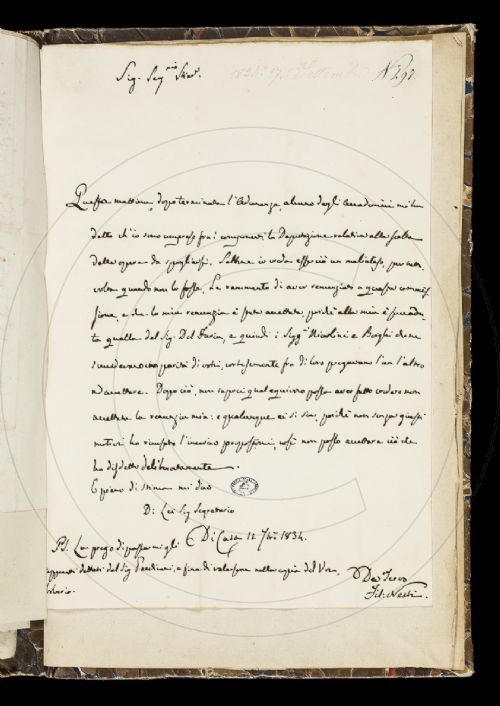 Sig. Seg.rio Stim.o
N. 292
Questa mattina, dopo terminata l'Adunanza, alcuno degli Accademici mi ha
detto ch'io sono compreso fra i componenti la Deputazione relativa alla scelta
delle opere da spogliarsi. Sebbene io creda essere ciò un malinteso, pur
volta quando non lo fosse, La rammento di aver renunziato a questa commis-
sione, e che la mia renunzia è stata accettata, poiché alla mia è succedu-
ta quella del Sig. Del Furia, e quindi i Sigg.ri Niccolini e Borghi che
parità di voti, cortesemente fra di loro pregavano l'un l'altro
ad accettare. Dopo ciò, non saprei qual equivoco possa aver fatto credere non
accettata la renunzia mia: e qualunque ei si sia, poiché non senza giusti
motivi ho ricusato l'incarico propostomi, così non posso accettare ciò che
ho disdetto deliberatamente.
E pieno di stima mi dico
Di Lei Sig. Segretario
Di Casa 11 7bre 1834.
PS. La prego di passarmi gli
appunti dettati dal Sig. , a fine di valersene nella copia del Voca-
bolario.
Dev. Servo
Fil. Nesti